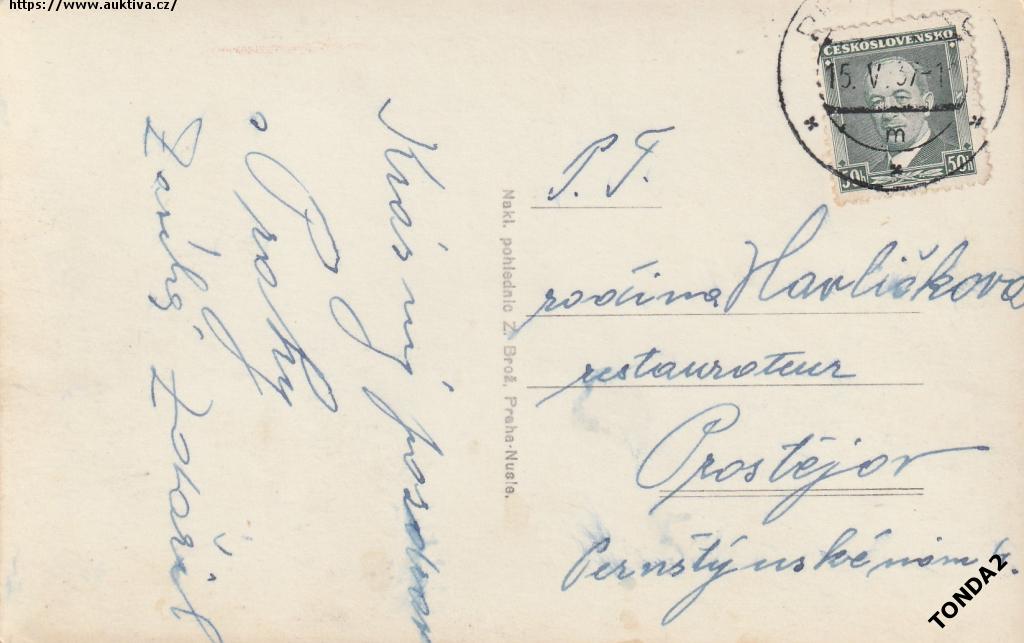 https://www.auktiva.cz/
ČESKOSLOVENSKO
15. V. 37-1
m
50h 50h
P. T.
rodina Havlíčkova
restaurateur
Prostějov
Pernštýnské nám.
Krásný pozdrav
z Prahy
Nakl. pohlednic Z. Brož, Praha-Nusle.
TONDA2